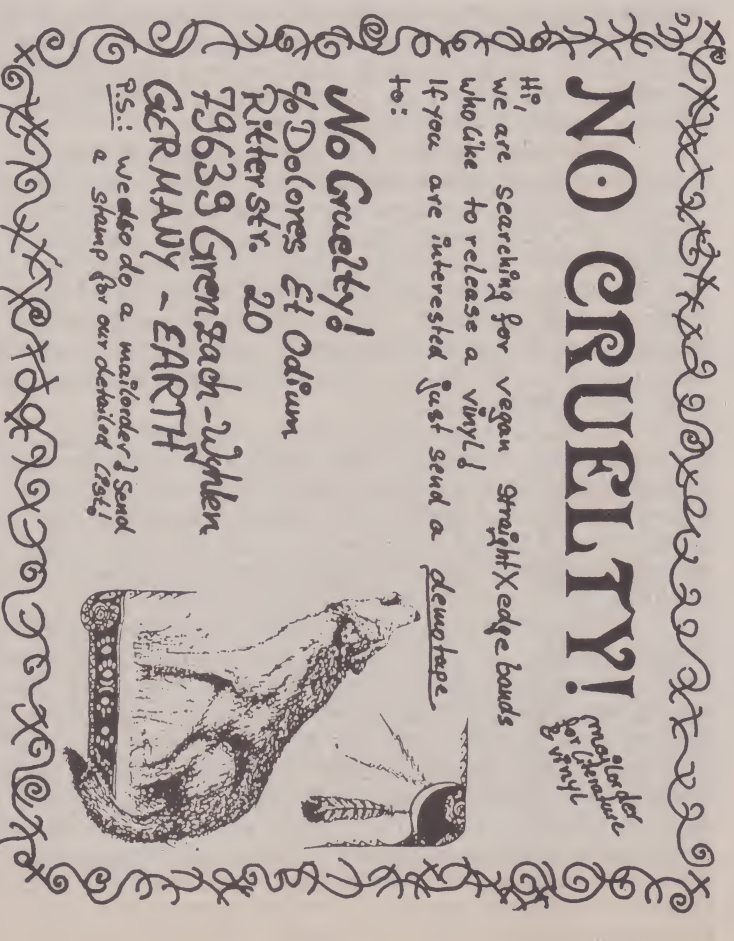 NO CRUELTY!
mailorder
for Literature
& vinyl
Hi,
we are searching for vegan straightXedge bands
who like to release a vinyl!
If you are interested just send a demotape
to:
No Cruelty!
c/o Dolores Et Odium
Ritterstr. 20
79639 Grenzach-Wyhlen
GERMANY - EARTH
P.S.: we also do a mailorder! Send
a stamp for our detailed list!